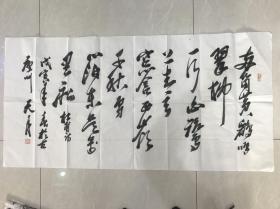 两个黄鹂鸣
翠柳
一行白鹭
上青天
窗含西岭
千秋雪
门泊东吴万
里船 杜甫诗
戊寅年春於古